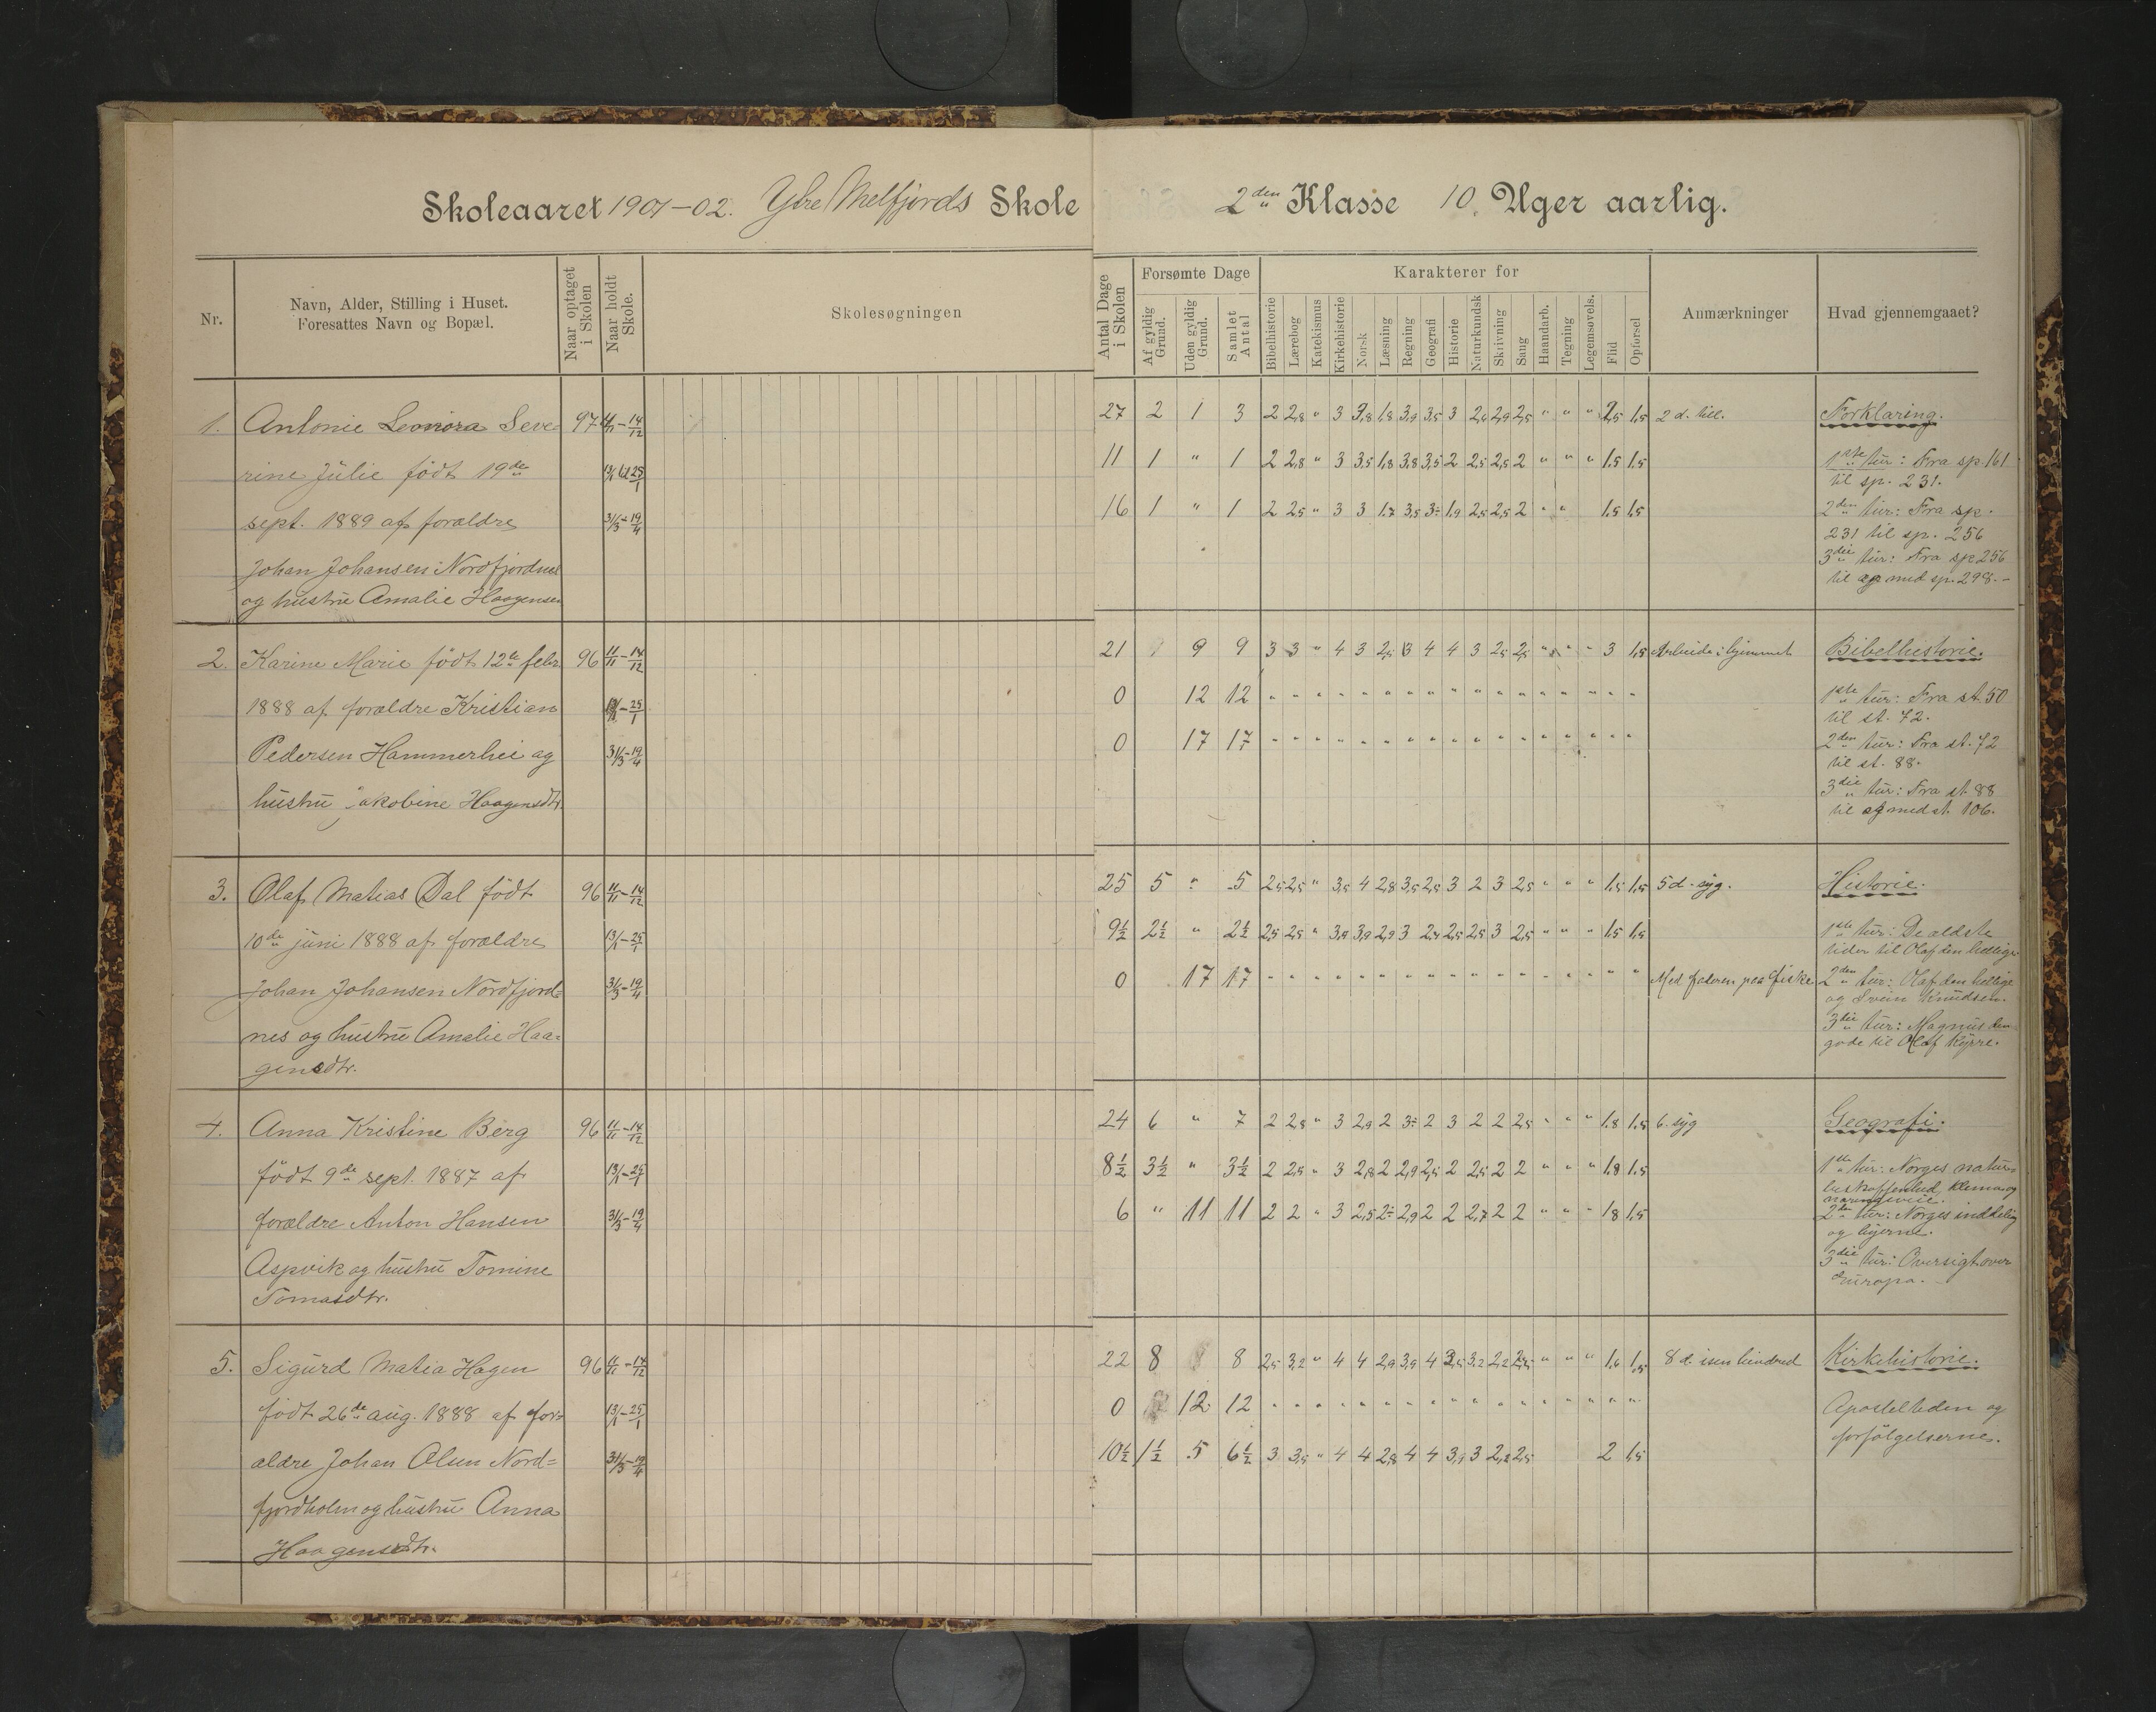 Skoleaaret 1901-02. Ytre Melfjords Skole
2den Klasse 10. Uger aarlig.
Nr.
Navn, Alder, Stilling i Huset.
Foresattes Navn og Bopæl.
Naar optaget i Skolen
Naar holdt Skole.
Skolesøgningen
Antal Dage i Skolen
Forsømte Dage
Af gyldig Grund.
Uden gyldig Grund.
Samlet Antal
Karakterer for
Bibelhistorie
Lærebog
Katekismus
Kirkehistorie
Norsk
Læsning
Regning
Geografi
Historie
Naturkundsk
Skrivning
Sang
Haandarb.
Tegning
Legemsøvels.
Flid
Opførsel
Anmærkninger
Hvad gjennemgaaet?
1. Antonie Leonora Seve-
rine Julie født 19de
sept. 1889 af forældre
Johan Johansen Nordfjordnes
og hustru Amalie Haagensen
97
14/12
25/1
31/3-19/4
27 2 1 3 2 2,8 " 3 3,8 1,8 3,9 3,5 3 2,6 2,9 2,5 " " " 2,5 1,5 2 d. till.
11 1 " 1 2 2,8 " 3 3,5 1,8 3,8 3,5 2 2,5 2,5 2 " " " 1,5 1,5
16 1 " 1 2 2,5 " 3 3 1,7 3,5 3- 1,9 2,5 2,5 2 " " 1,5 1,5
Forklaring.
1ste tur: Fra sp. 161
til sp. 231.
2den tur: Fra sp.
231 til sp. 256
3die tur: Fra sp 256
til og med sp. 298.-
2. Karine Marie født 12te febr.
1888 af forældre Kristian
Pedersen Hammerhei og
hustru Jakobine Haagensdtr.
96 11/11-14/12
13/1-25/1
31/3-19/4
21 9 9 3 3 " 4 3 2,5 3 4 4 3 2,5 2,5 " " " 3 1,5 Arbeide i hjemmet
0 12 12 " " " " " " " " " " " " " " " " "
0 17 17 " " " " " " " " " " " " " " " " "
Bibelhistorie.
1ste tur: Fra st. 50
til st. 72.
2den tur: Fra st. 72
til st. 88.
3die tur: Fra st. 88
til og med st. 106.
3. Olaf Matias Dal født
10de juni 1888 af forældre
Johan Johansen Nordfjord-
nes og hustru Amalie Haa-
gensdtr.
96 11/11-14/12
13/1-25/1
31/3-19/4
25 5 " 5 2,5 2,5 " 3,5 4 2,8 3,5 2,5 3 2 3 2,5 " " " 1,5 1,5 5 d. syg.
9½ 2½ " 2½ 2,5 2,5 " 3,9 3,9 2,9 3 2,4 2,5 2,5 3 2,5 " " " 1,5 1,5
0 17 17 " " " " " " " " " " " " " " " " " Med faderen paa fiske
Historie.
1ste tur: De ældste
tider til Olaf den hellige
2den tur: Olaf den hellige
og Svein Knudsen.
3die tur: Magnus den
gode til Olaf Kyrre.
4. Anna Kristine Berg
født 9de sept. 1887 af
forældre Anton Hansen
Aspvik og hustru Tomine
Tomasdtr.
96 11/11-14/12
13/1-25/1
31/3-19/4
24 6 " 7 2 2,8 " 3 2,9 2 3- 2 3 2 2 2,5 " " " 1,8 1,5 6. syg
8½ 3½ " 3½ 2 2,5 " 3 2,8 2 2,9 2,5 2 2,5 2 2 " " " 1,8 1,5
6 " 11 11 2 2 " 3 2,5 2- 2,9 2 2 2,7 2 2 " " " 1,8 1,5
Geografi.
1ste tur: Norges natur-
beskaffenhed, klima og
næringsveie.
2den tur: Norges inddeling
og byerne.
3die tur: Oversigt over
Europa.
5. Sigurd Matia Hagen
født 26de aug. 1888 af for-
ældre Johan Olsen Nord-
fjordholm og hustru Anna
Haagensdtr.
96 11/11-14/12
13/1-25/1
31/3-19/4
22 8 8 2,5 3,2 " 4 4 2,9 3,9 4 3,5 3,2 2,2 2,5 " " " 1,6 1,5 8 d. isen hindred
0 12 12 " " " " " " " " " " " " " " " " "
10½ 1½ 5 6½ 3 3,5 " 4 4 2,8 4 4 3,9 3 2,2 2,5 2 1,5
Kirkehistorie.
Aposteltiden og
forfølgelserne.